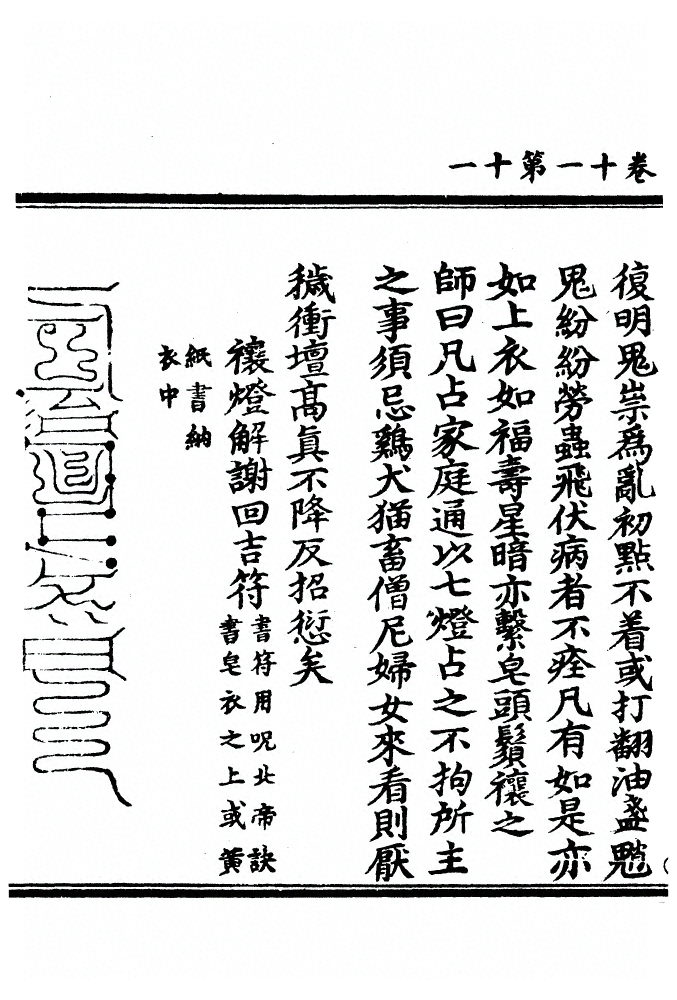 卷十一第十一
復明鬼祟爲亂初點不着或打翻油盞魁
鬼紛紛勞蟲飛伏病者不痊凡有如是亦
如上衣如福壽星暗亦繫皂頭鬚禳之
師曰凡占家庭通以七燈占之不拘所主
之事須忌鷄犬猫畜僧尼婦女來看則厭
穢衝壇高眞不降反招愆矣
禳燈解謝回吉符
書符用呪北帝訣
書皂衣之上或黃
紙書納
衣中